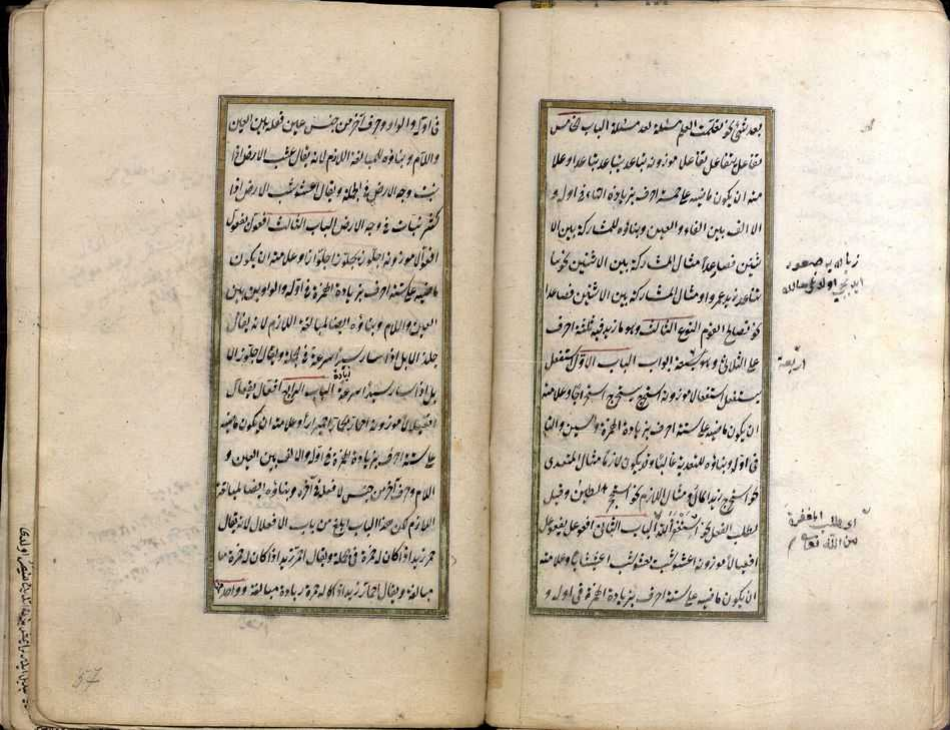 بعد شئ نحو تعلمت العلم مسئلة بعد مسئلة الباب الخامس
تفاعل يتفاعل تفاعلا موزونه تباعد يتباعد تباعدا وعلا
منه ان يكون ماضيه على خمسة احرف بزيادة التاء فى اوله و
الالف بين الفاء والعين وبناؤه للمشاركة بين الا
ثنين فصاعدا مثال المشاركة بين الاثنين نحو تبا
تباعد زيد عمرو ومثال المشاركة بين الاثنين فصاعدا
نحو تصالح القوم النوع الثالث وهو ما زيد فيه ثلثة احرف
على الثلاثى وهو اربعة ابواب الباب الاول استفعل
يستفعل استفعالا موزونه استخرج يستخرج استخراجا وعلامته
ان يكون ماضيه على ستة احرف بزيادة الهمزة والسين والتا
فى اوله وبناؤه للتعدية غالبا وقد يكون لازما مثال المتعدى
نحو استخرج زيد المال ومثال اللازم نحو استحجر الطين وقيل
لطلب الفعل نحو استغفر الله الباب الثانى افعوعل يفعوعل
افعيعالا موزونه اعشوشب يعشوشب اعشيشابا وعلامته
ان يكون ماضيه على ستة احرف بزيادة الهمزة فى اوله و
اربعة
اى طلب المغفرة
من الله تعالى
فى اوله والواو وحرف آخر من جنس عين فعله بين العين
واللام وبناؤه لمبالغة اللازم لانه يقال عشب الارض اذا
نبت وجه الارض فى الجملة ويقال اعشوشب الارض اذا
كثر نبات فى وجه الارض الباب الثالث افعول يفعول
افعوالا موزونه اجلوز يجلوز اجلوازا وعلامته ان يكون
ماضيه على ستة احرف بزيادة الهمزة فى اوله والواوين بين
العين واللام وبناؤه ايضا لمبالغة اللازم لانه يقال
جلذ الابل اذا سار سيرا سرعة فى الجملة ويقال اجلوز الا
بل اذا سار سيرا سرعة زيادة الباب الرابع افعال يفعال
افعيلالا موزونه احمار يحمار احميرارا وعلامته ان يكون ماضيه
على ستة احرف بزيادة الهمزة فى اوله والالف بين العين و
اللام وحرف آخر من جنس لام فعله فى آخره وبناؤه ايضا لمبالغة
اللازم لكن هذا الباب ابلغ من باب الافعلال لانه يقال
حمر زيد اذا كان له حمرة فى الجملة ويقال احمر زيد اذا كان له حمرة مبا
مبالغة ويقال احمار زيد اذا كان له حمرة زيادة مبالغة وواحد
57